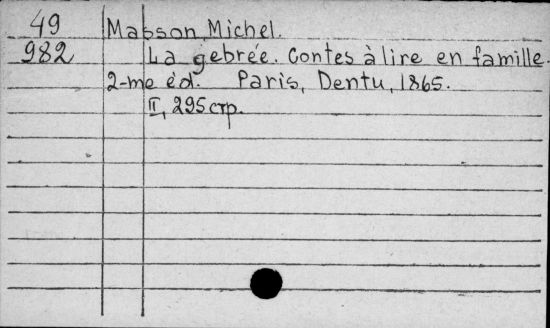 49 Masson, Michel.
982 La gebrée. Contes à lire en famille.
2-me éd. Paris, Dentu, 1865.
II, 295 стр.